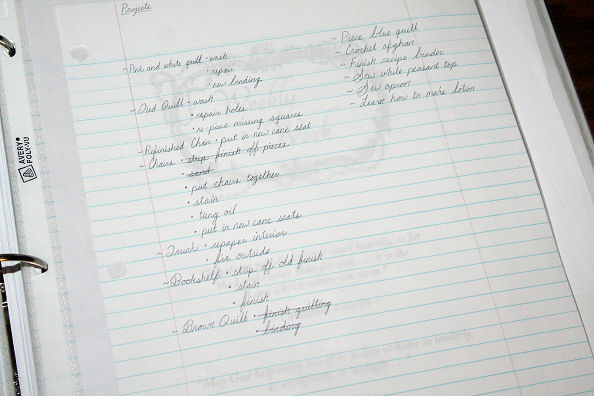 Projects
~ Pink and white quilt • wash
• repair
• new binding
~ Tied Quilt • wash
• repair holes
• re-piece missing squares
~ Refinished Chair • put in new cane seat
~ Chairs • strip finish off pieces
• sand
• put chairs together
• stain
• tung oil
• put in new cane seats
~ Trunk • repaper interior
• fix outside
~ Bookshelf • strip off old finish
• stain
• finish
~ Brown Quilt • finish quilting
• binding
~ Piece blue quilt
~ Crochet afghan
~ Finish recipe binder
~ Sew white peasant top
~ Sew apron
~ Learn how to make lotion
AVERY
POLY-VU
"May God help every one of us to live at home as tenderly,